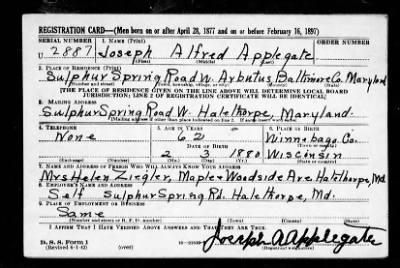 REGISTRATION CARD—(Men born on or after April 28, 1877 and on or before February 16, 1897)
SERIAL NUMBER 1. NAME (Print) ORDER NUMBER
U 2887 Joseph Alfred Applegate
(First) (Middle) (Last)
2. PLACE OF RESIDENCE (Print)
Sulphur Spring Road W. Arbutus, Baltimore Co. Maryland
(Number and street) (Town, township, village, or city) (County) (State)
[THE PLACE OF RESIDENCE GIVEN ON THE LINE ABOVE WILL DETERMINE LOCAL BOARD
JURISDICTION; LINE 2 OF REGISTRATION CERTIFICATE WILL BE IDENTICAL]
3. MAILING ADDRESS
Sulphur Spring Road W. Halethorpe, Maryland.
(Mailing address if other than place indicated on line 2. If same insert word same)
4. TELEPHONE 5. AGE IN YEARS 6. PLACE OF BIRTH
None 62 Winnebago Co.
DATE OF BIRTH (Town or county)
2 3 1880 Wisconsin
(Exchange) (Number) (Mo.) (Day) (Yr.) (State or country)
7. NAME AND ADDRESS OF PERSON WHO WILL ALWAYS KNOW YOUR ADDRESS
Mrs Helen Ziegler, Maple & Woodside Ave. Halethorpe, Md.
8. EMPLOYER'S NAME AND ADDRESS
Self Sulphur Spring Rd. Halethorpe, Md.
9. PLACE OF EMPLOYMENT OR BUSINESS
Same
(Number and street or R. F. D. number) (Town) (County) (State)
I AFFIRM THAT I HAVE VERIFIED ABOVE ANSWERS AND THAT THEY ARE TRUE.
D. S. S. Form 1
(Revised 4-1-42) (over)
Joseph A Applegate